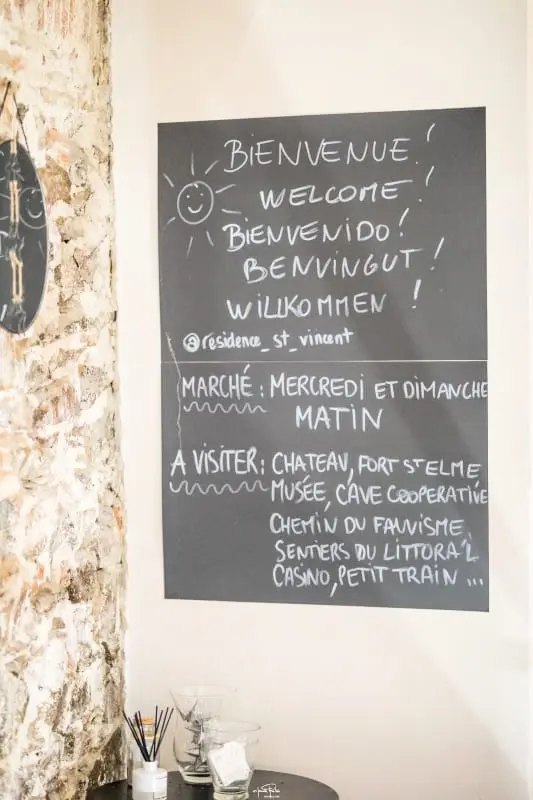 BIENVENUE !
WELCOME !
BIENVENIDO !
BENVINGUT !
WILLKOMMEN !
@residence_st_vincent
MARCHÉ : MERCREDI ET DIMANCHE
MATIN
A VISITER : CHATEAU, FORT ST ELME
MUSÉE, CAVE COOPERATIVE
CHEMIN DU FAUVISME,
SENTIERS DU LITTORAL
CASINO, PETIT TRAIN ...